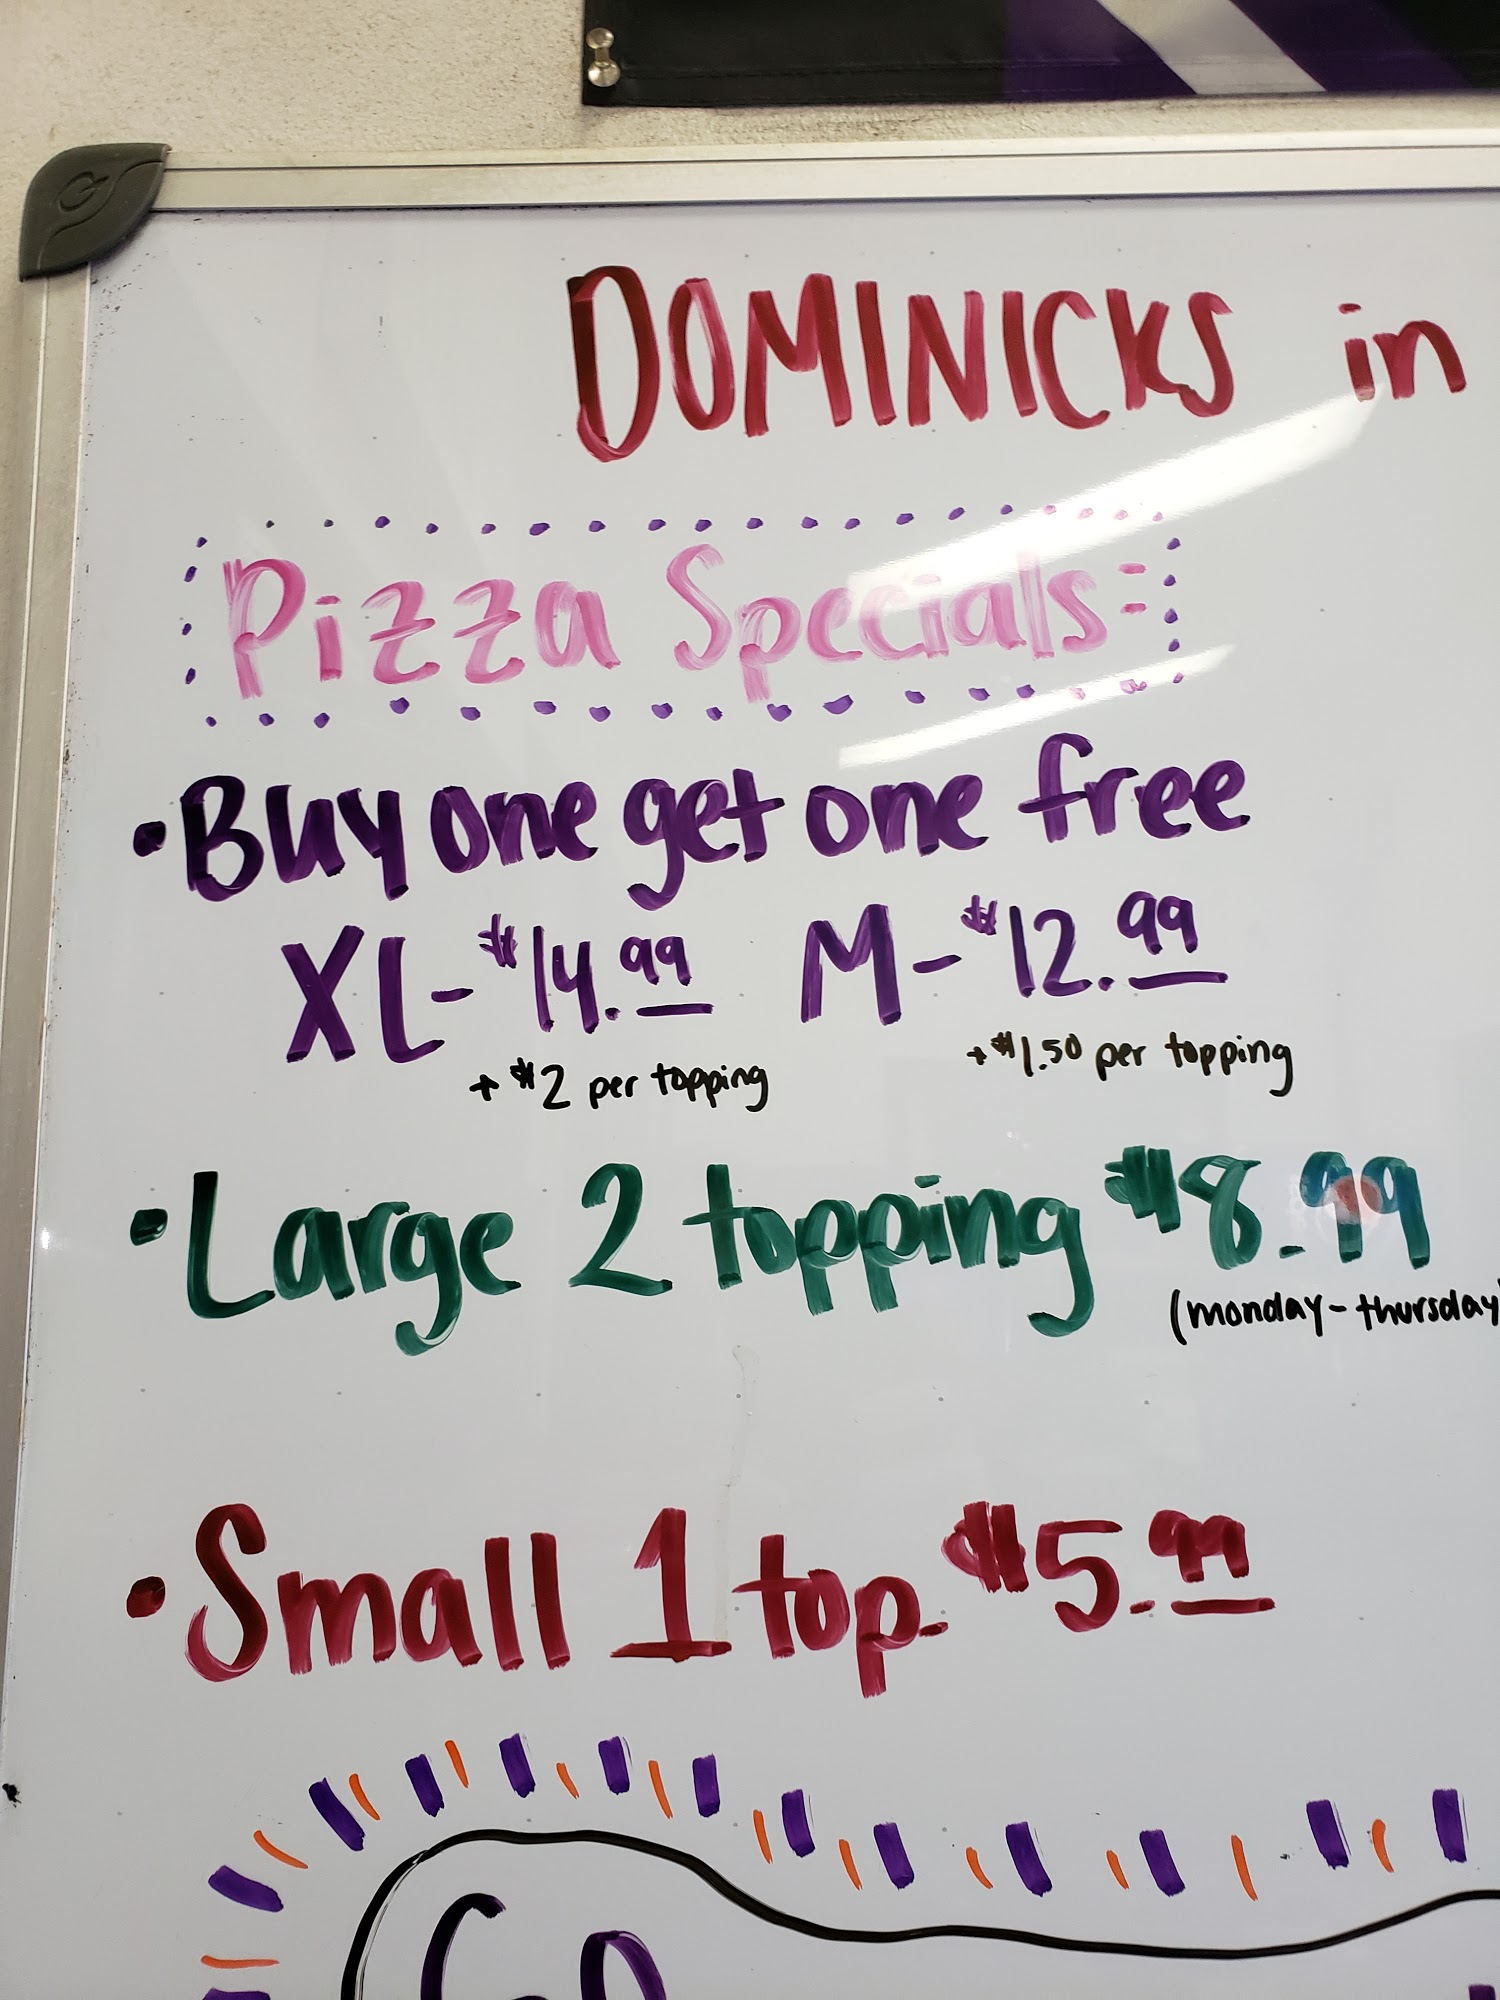 DOMINICKS in
Pizza Specials:
• Buy one get one free
XL - $14.99 M - $12.99
+ $2 per topping + $1.50 per topping
• Large 2 topping $8.99
(monday - thursday)
• Small 1 top. $5.99
Go